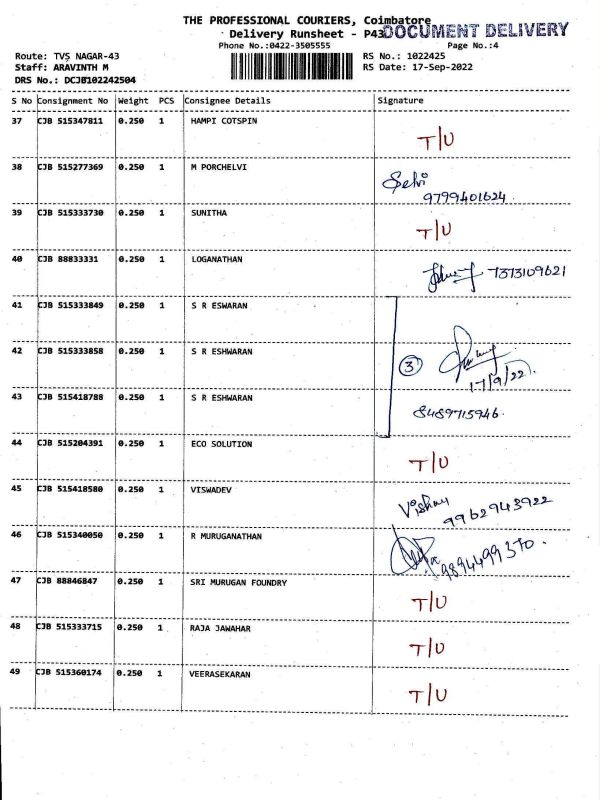 THE PROFESSIONAL COURIERS, Coimbatore
Delivery Runsheet - P43 DOCUMENT DELIVERY
Phone No.:0422-3505555 Page No.:4
Route: TVS NAGAR-43 RS No.: 1022425
Staff: ARAVINTH M RS Date: 17-Sep-2022
DRS No.: DCJB102242504
S No Consignment No Weight PCS Consignee Details Signature
37 CJB 515347811 0.250 1 HAMPI COTSPIN
T/U
38 CJB 515277369 0.250 1 M PORCHELVI
Selvi
9799401624
39 CJB 515333730 0.250 1 SUNITHA
T/U
40 CJB 88833331 0.250 1 LOGANATHAN
7373109621
41 CJB 515333849 0.250 1 S R ESWARAN
42 CJB 515333858 0.250 1 S R ESHWARAN
3
17/9/22
43 CJB 515418788 0.250 1 S R ESHWARAN
8489715946
44 CJB 515204391 0.250 1 ECO SOLUTION
T/U
45 CJB 515418580 0.250 1 VISWADEV
Vishnu
9962943922
46 CJB 515340050 0.250 1 R MURUGANATHAN
9894499370
47 CJB 88846847 0.250 1 SRI MURUGAN FOUNDRY
T/U
48 CJB 515333715 0.250 1 RAJA JAWAHAR
T/U
49 CJB 515360174 0.250 1 VEERASEKARAN
T/U